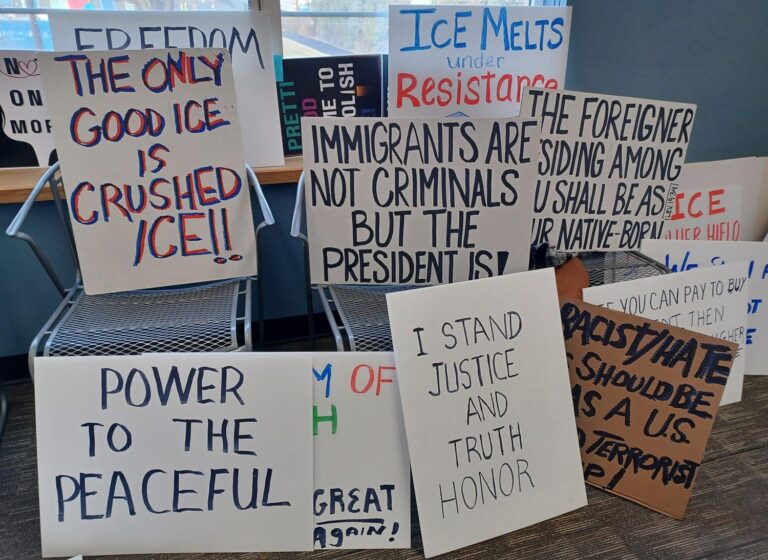 FREEDOM
N
ON
MOR
PRETTI
OD
ME TO
OLISH
ICE MELTS
under
Resistance
THE ONLY
GOOD ICE
IS
CRUSHED
ICE!!
IMMIGRANTS ARE
NOT CRIMINALS
BUT THE
PRESIDENT IS!
THE FOREIGNER
SIDING AMONG
U SHALL BE AS
UR NATIVE-BORN
LEV. 19:34
ICE
We S
E YOU CAN PAY TO BUY
THEN
RACIST/HATE
SHOULD BE
AS A U.S.
TERRORIST
P!
POWER
TO THE
PEACEFUL
M OF
H
GREAT
Again!
I STAND
JUSTICE
AND
TRUTH
HONOR